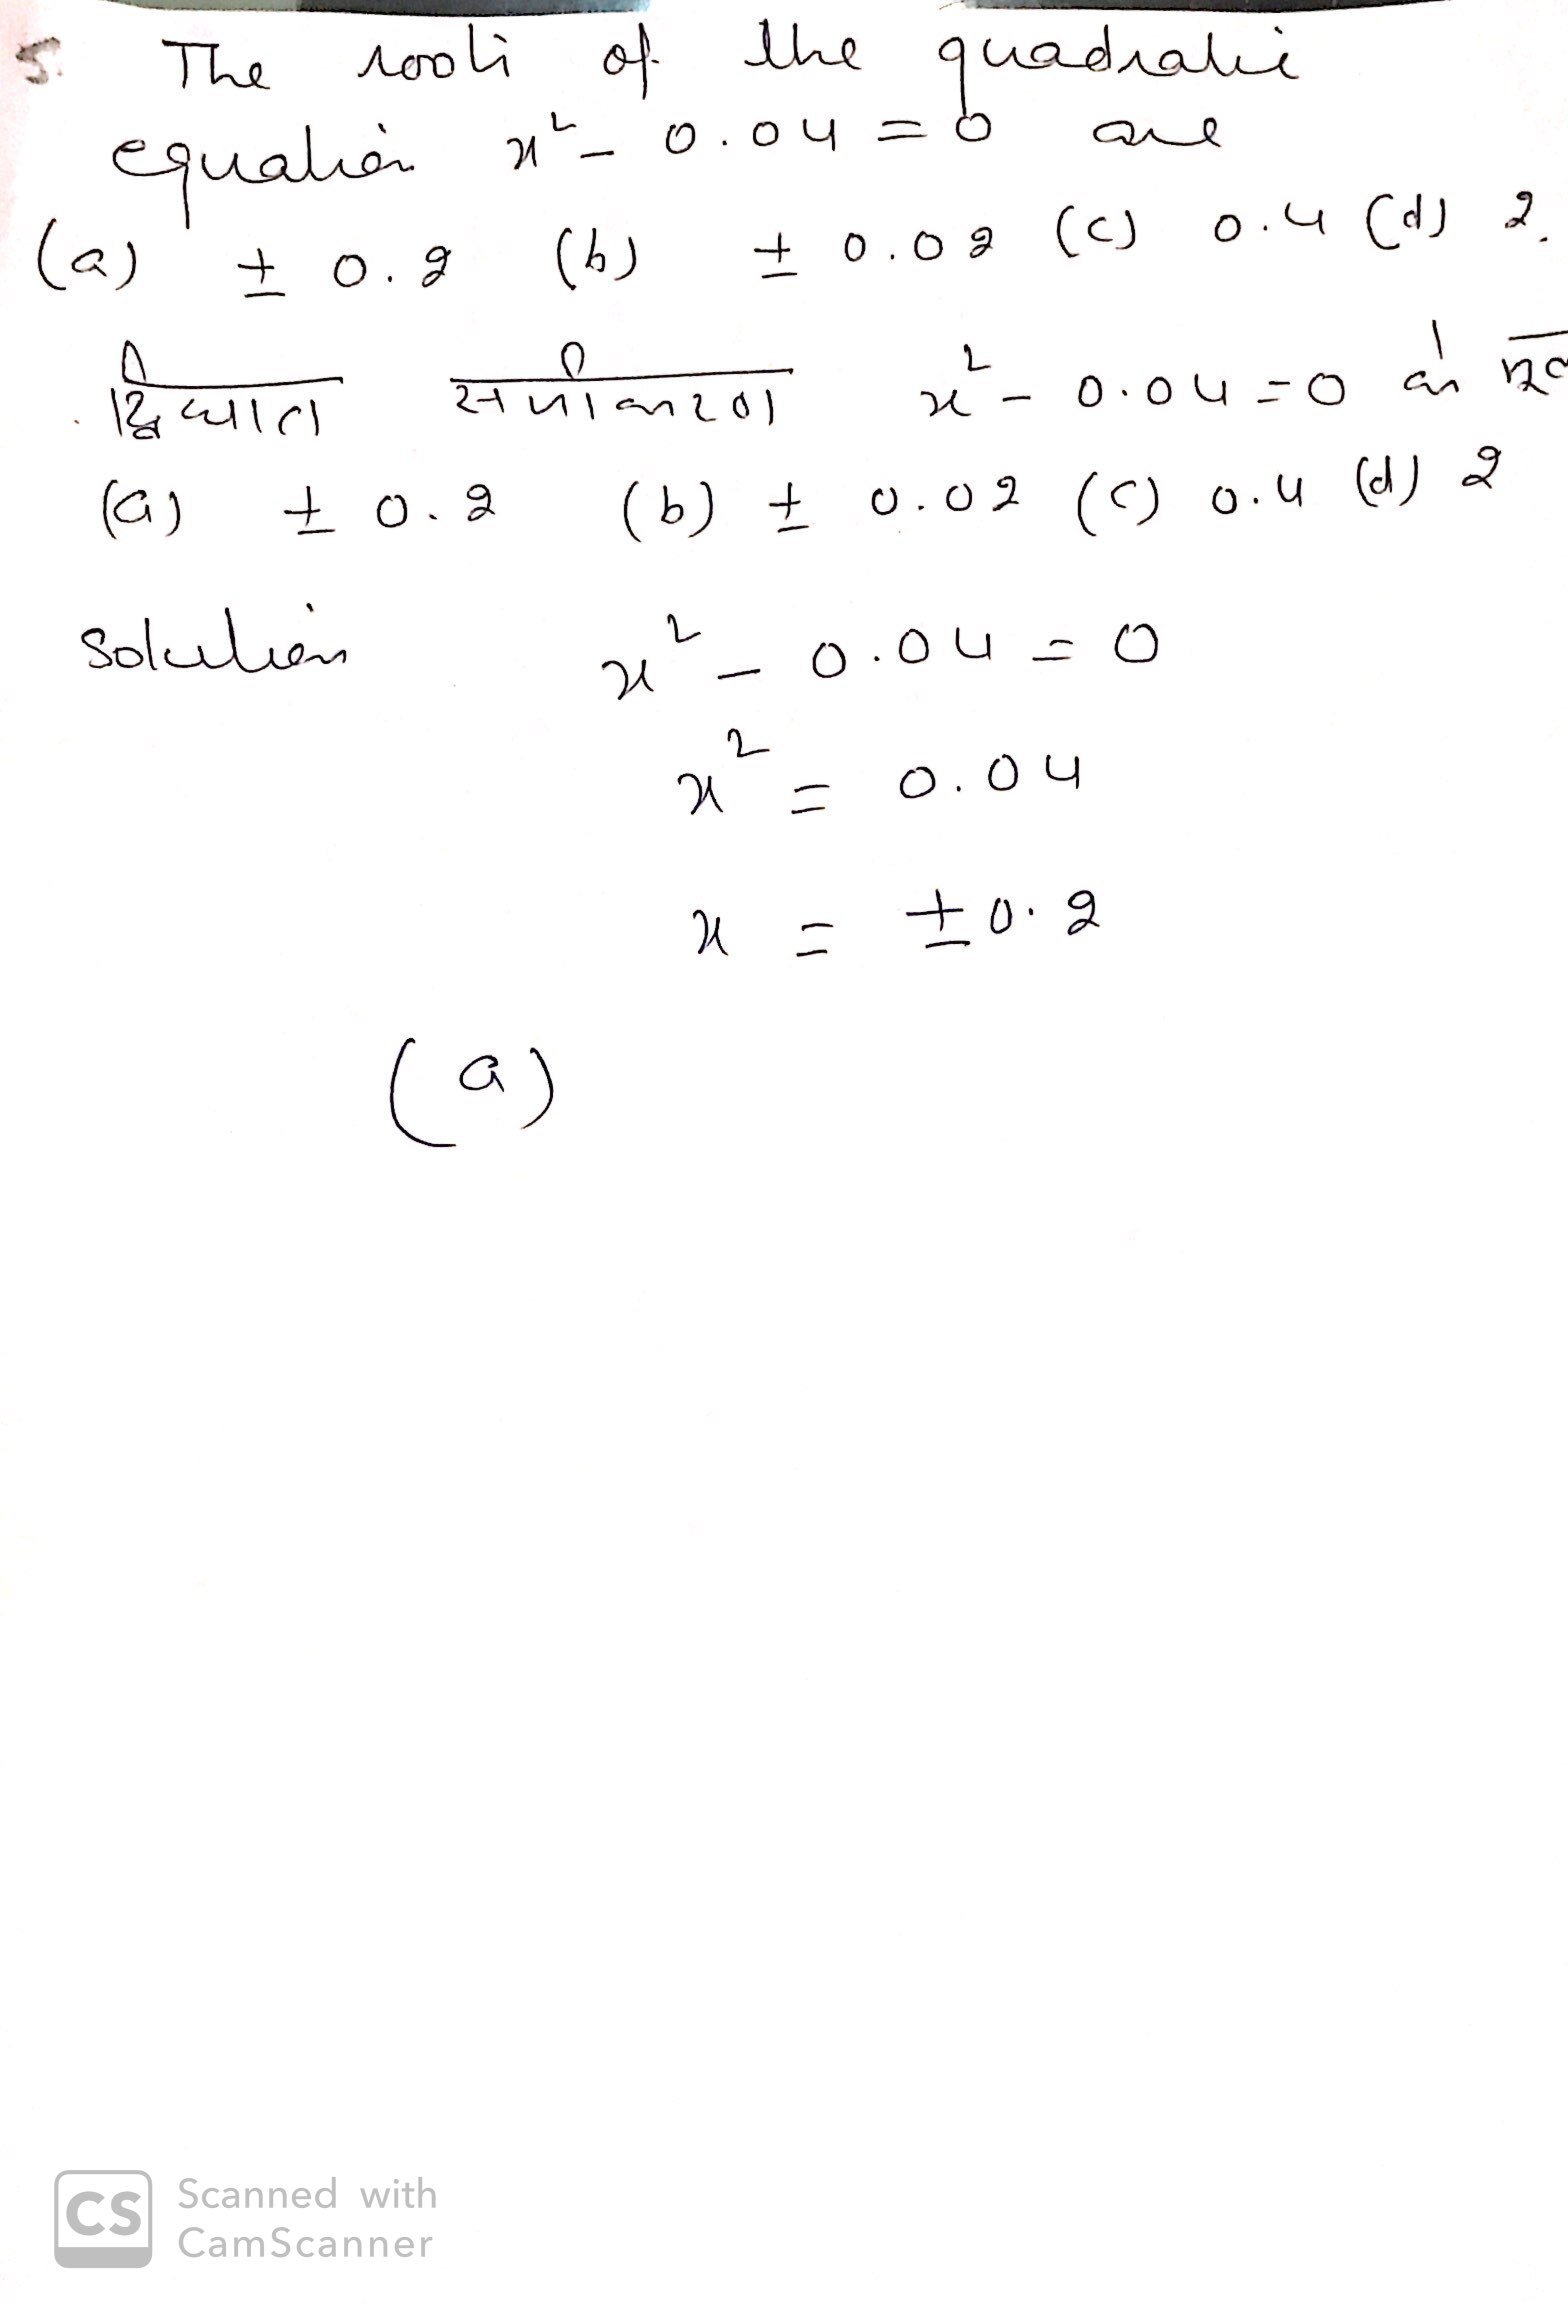 5. The roots of the quadratic
equation x² - 0.04 = 0 are
(a) ± 0.2 (b) ± 0.02 (c) 0.4 (d) 2.
द्विघात समीकरण x² - 0.04 = 0 के
(a) ± 0.2 (b) ± 0.02 (c) 0.4 (d) 2
Solution x² - 0.04 = 0
x² = 0.04
x = ± 0.2
(a)
CS Scanned with
CamScanner